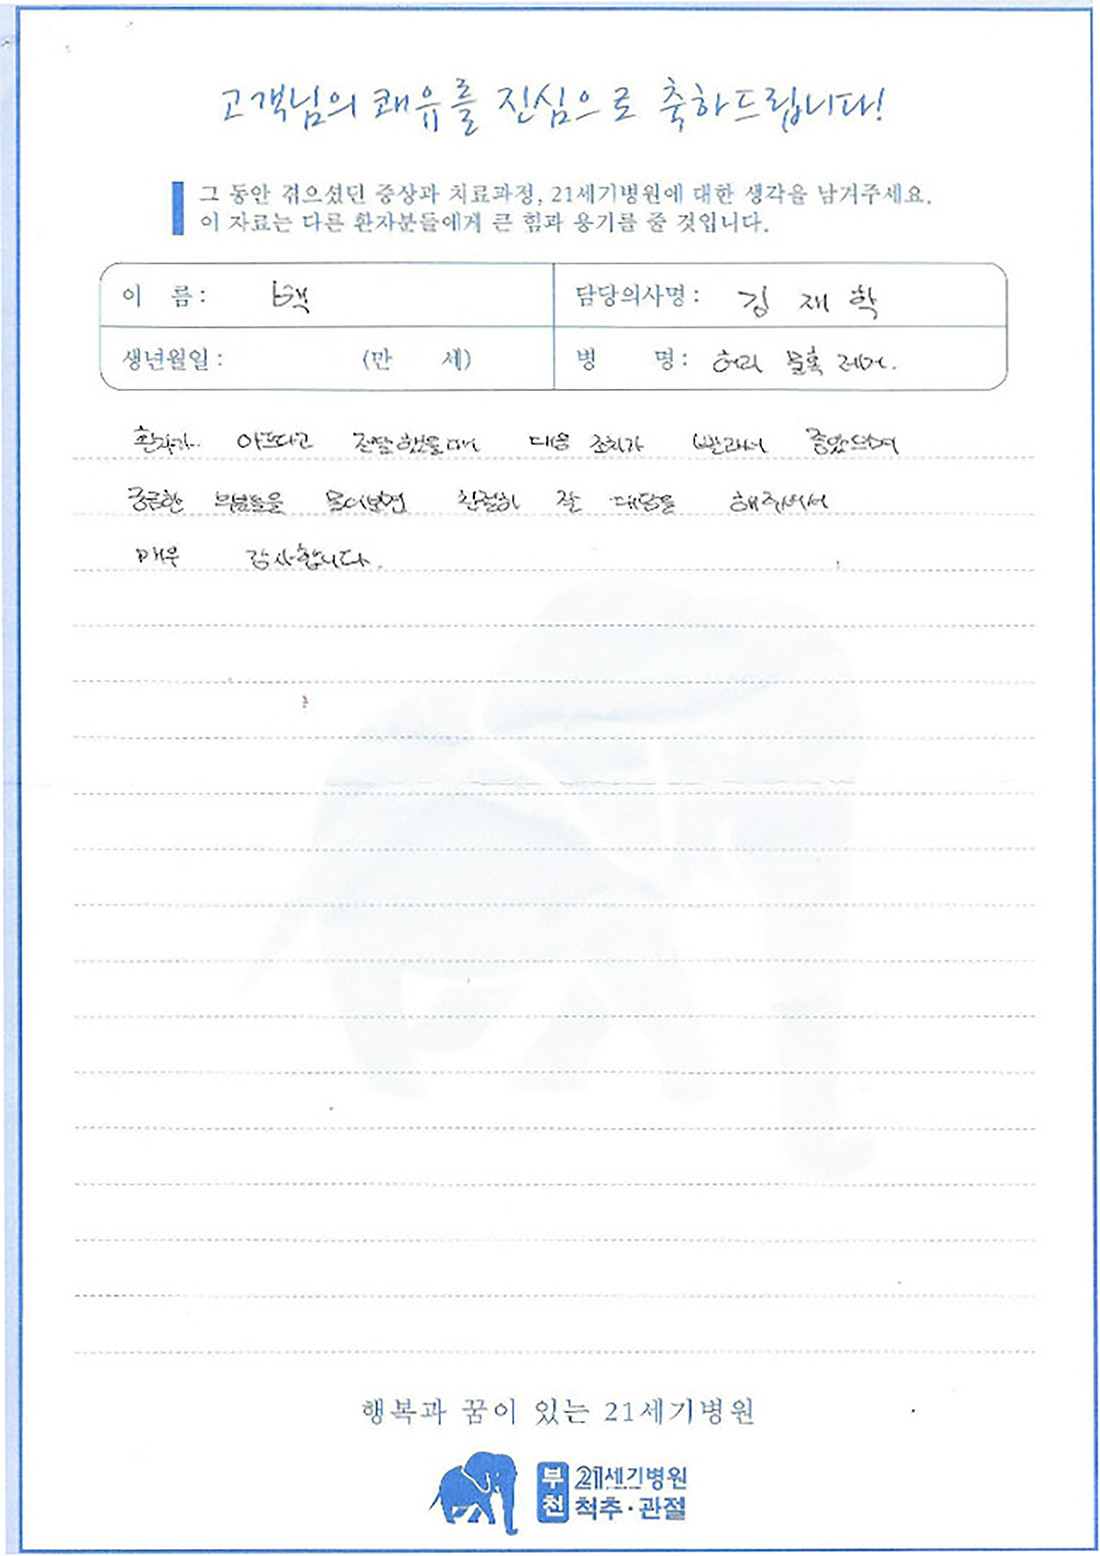 고객님의 쾌유를 진심으로 축하드립니다!
그 동안 겪으셨던 증상과 치료과정, 21세기병원에 대한 생각을 남겨주세요.
이 자료는 다른 환자분들에게 큰 힘과 용기를 줄 것입니다.
이 름 : 백
담당의사명 : 김 재 학
생년월일 : (만 세)
병 명 : 허리 물혹 제거.
환자가.. 아프다고 전달했을때 대응 조치가 빨라서 좋았으며
궁금한 부분들을 물어보면 친절히 잘 대답을 해주셔서
매우 감사합니다.
행복과 꿈이 있는 21세기병원
부천 21세기병원
척추·관절